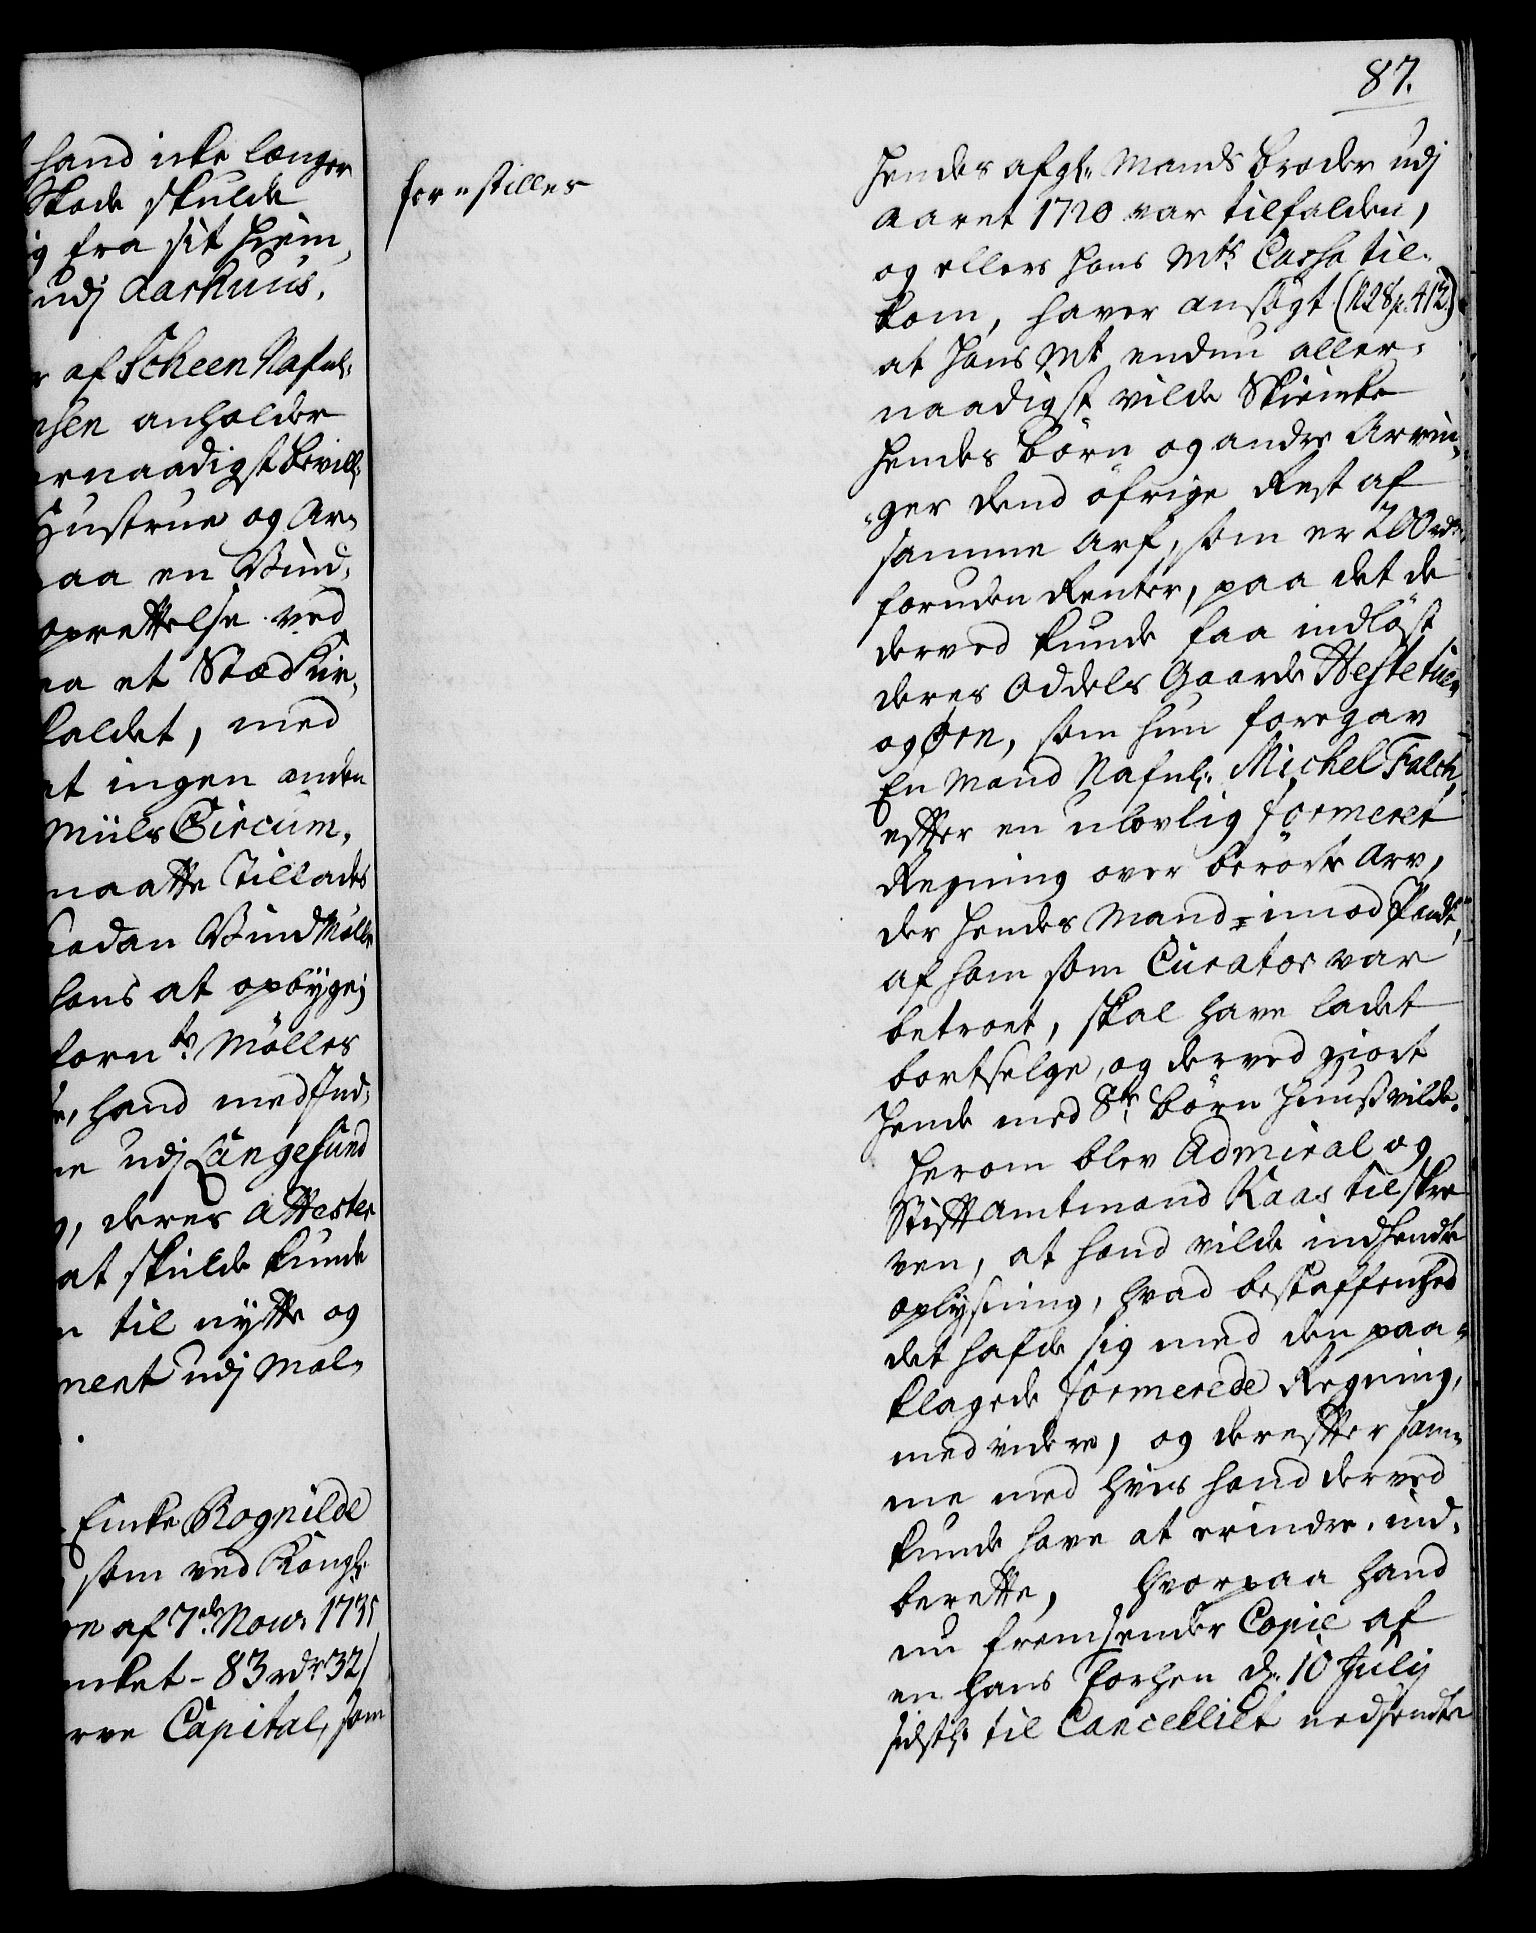 hand icke længer
Skade skulde
fra sit Hiem,
udj Aarhuus.
af Scheen Nafnl:
sen anholder
ernaadigst bevill,
Hustrue og Ar,
paa en Vind,
oprettelse ved
et Sted Kir,
kaldet, med
at ingen anden
Miils Circum,
maatte Tillades
saadan Vind Mølle
lons at opbÿge;
forn.te Mølles
, hand med Ind,
udj Langesund
, deres Attester
at skulde kunde
til nÿtte og
ment udj Mal,
.
Encke Rognilde
som ved Kongl:
af 7de Nov. 1735
nket - 83 rdr 32 /
Capital, som
87.
forestilles
Hendes afgl: Mands Broder udj
Aaret 1720 var tilfalden,
og ellers Hans Mts Cassa til,
kom, haver ansøgt (N28 p. 412)
at Hans Mt endnu aller,
naadigst vilde Skiencke
Hendes Børn og andre Arvin,
,ger dend øfrige Rest af
samme Arf, som er 200 rdr
foruden Renter, paa det de
derved kunde faa indløst
deres Oddels Gaarde Hestetun
og Øen, som hun foregav
En Mand Nafnl: Michel Falch,
efter en ulovlig formeret
Regning over berørte Arv,
der Hendes Mand imod Pandt,
af ham som Curator var
betroet, skal have ladet
bortselge, og derved giort
Hende med 8te Børn Huusvilde.
Herom blev Admiral og
Stiftamtmand Kaas tilskre
ven, at hand vilde indhendte
oplysning, hvad beskaffenhed
det hafde sig med den paa,
klagede formerede Regning,
med videre, og derefter sam,
me med hvis hand derved
kunde have at erindre, ind,
berette, Hvorpaa hand
nu fremsender Copie af
en hans forhen d: 10 Julij
sidstl: til Cancelliet nedsendte